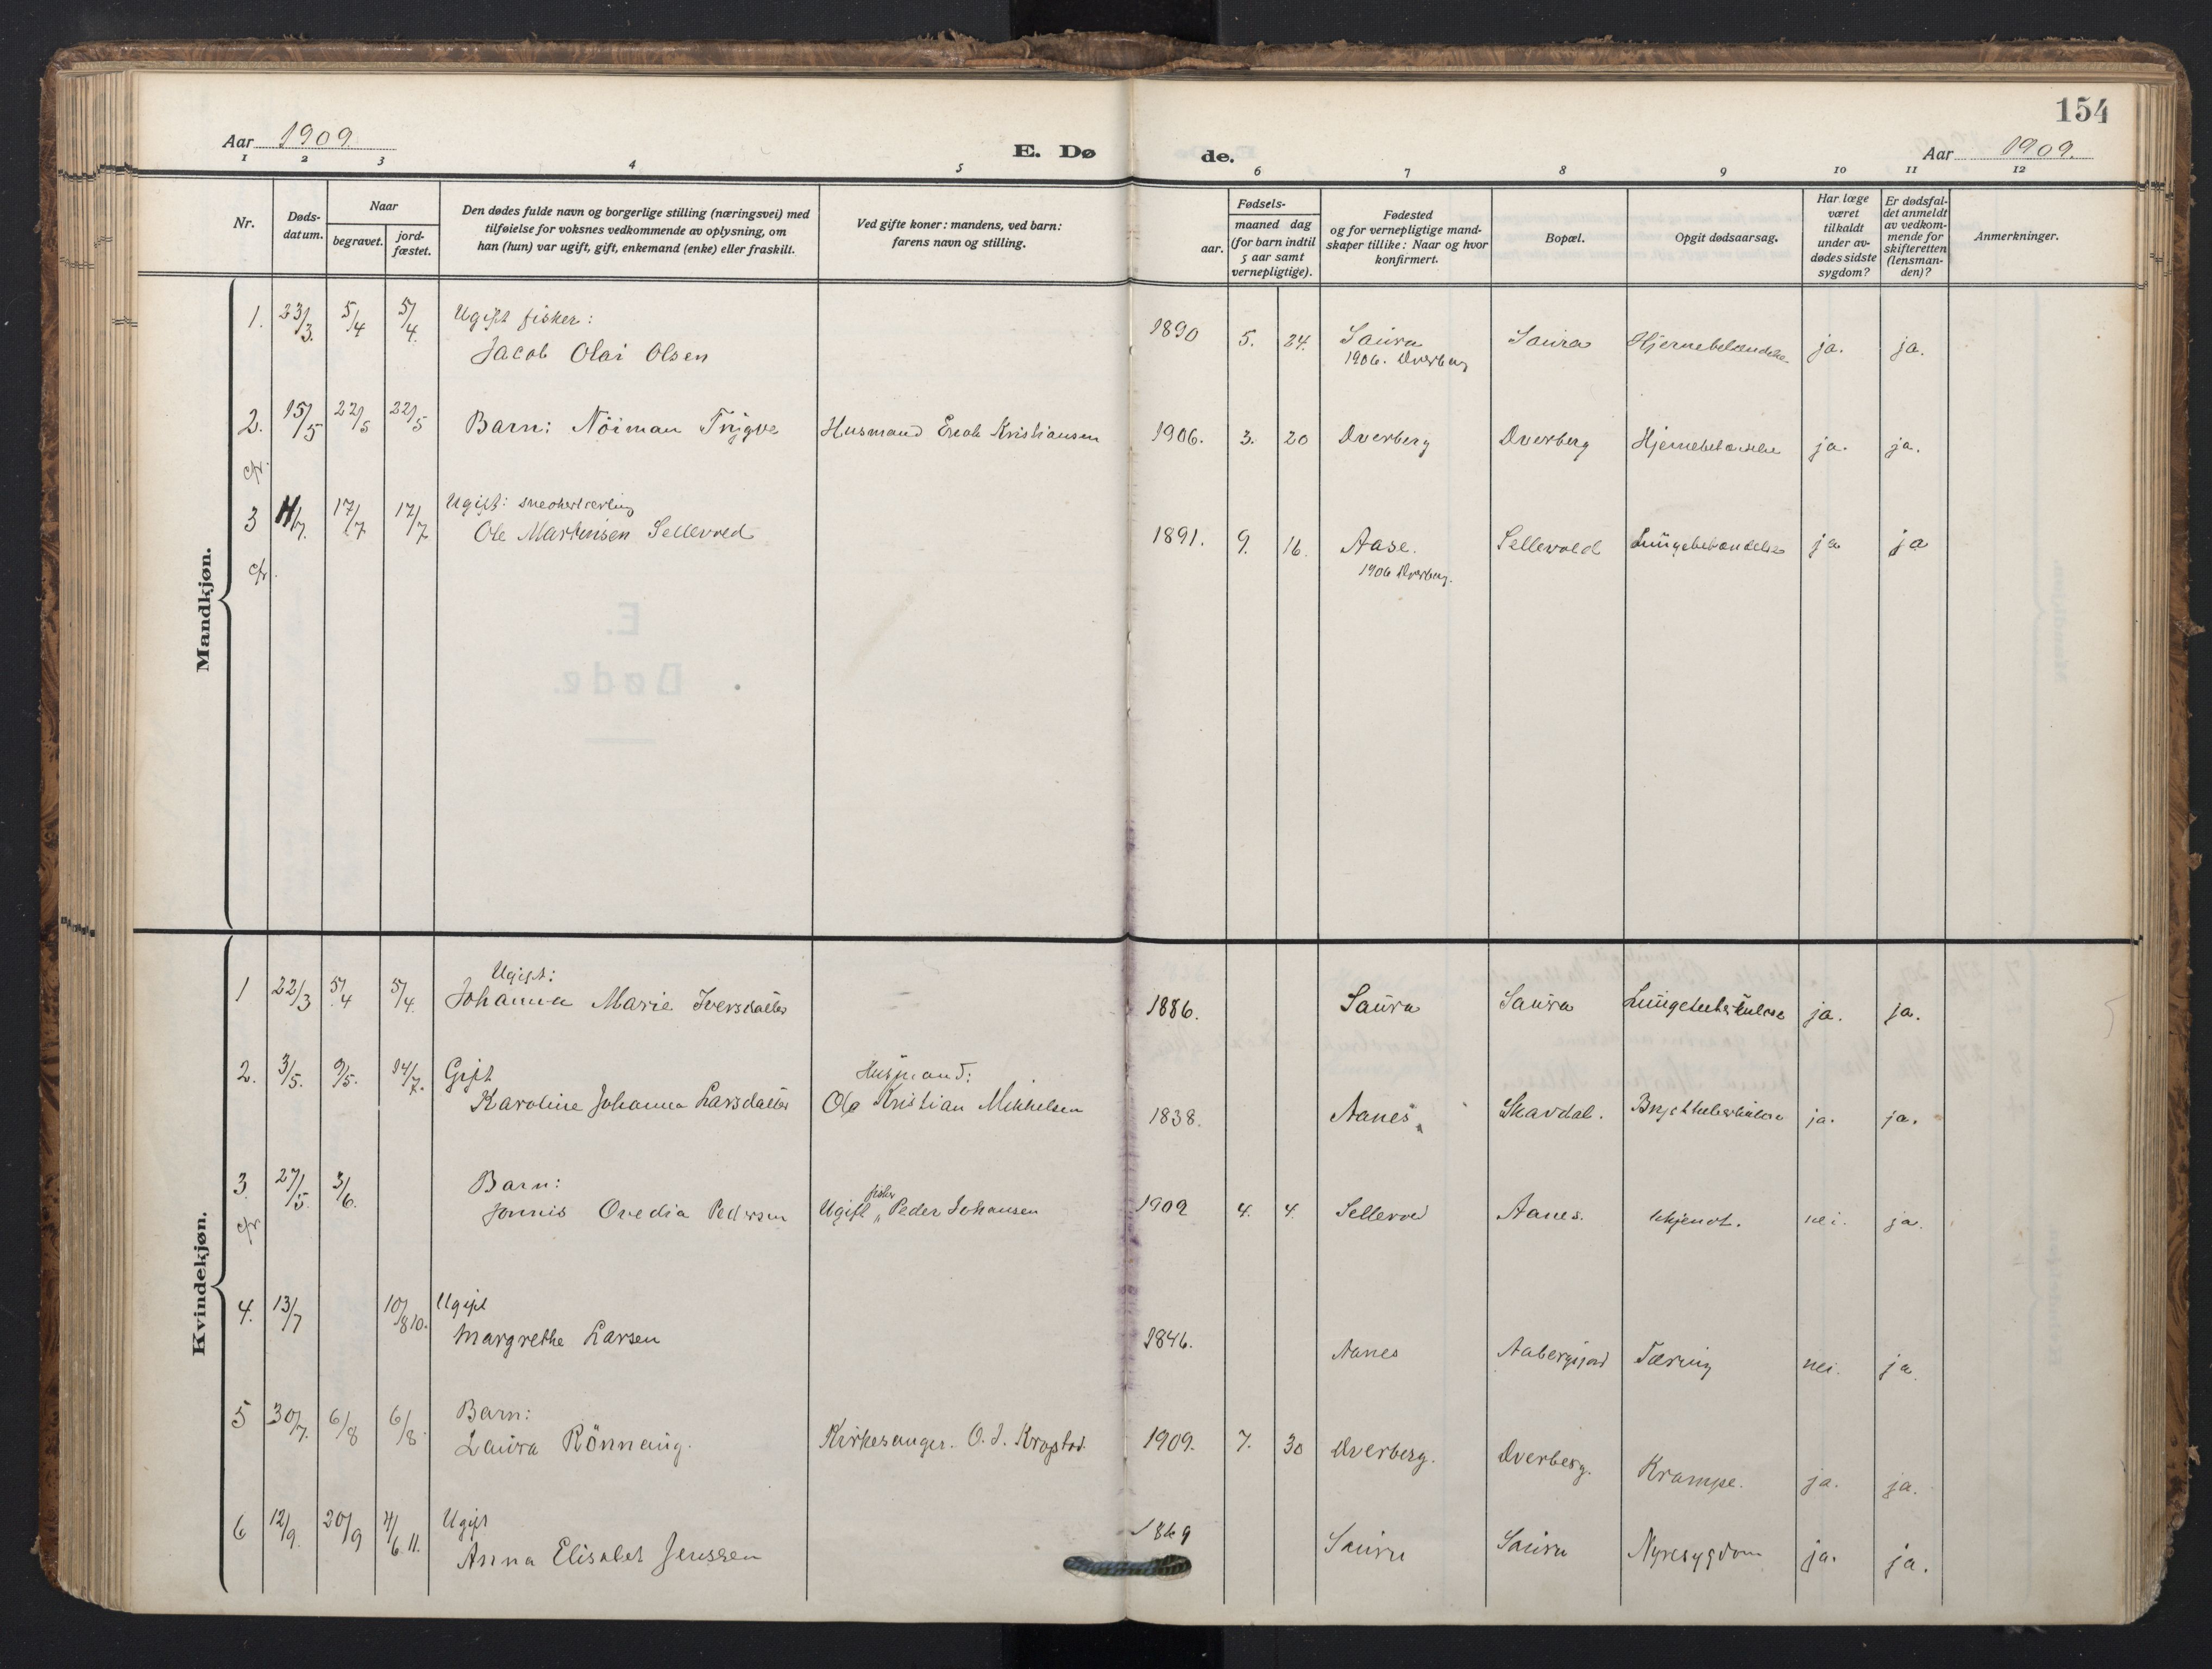 154
Aar 1909.
E. Dø
de.
Aar 1909.
1 2 3 4 5 6 7 8 9 10 11 12
Nr.
Døds-
datum.
Naar
begravet.
jord-
fæstet.
Den dødes fulde navn og borgerlige stilling (næringsvei) med
tilføielse for voksnes vedkommende av oplysning, om
han (hun) var ugift, gift, enkemand (enke) eller fraskilt.
Ved gifte koner: mandens, ved barn:
farens navn og stilling.
Fødsels-
aar.
maaned dag
(for barn indtil
5 aar samt
vernepligtige).
Fødested
og for vernepligtige mand-
skaper tillike: Naar og hvor
konfirmert.
Bopæl.
Opgit dødsaarsag.
Har læge
været
tilkaldt
under av-
dødes sidste
sygdom?
Er dødsfal-
det anmeldt
av vedkom-
mende for
skifteretten
(lensman-
den)?
Anmerkninger.
Mandkjøn.
1. 23/3. 5/4 5/4. Ugift fisker:
Jacob Olai Olsen 1890 5. 24. Saura Saura ja. ja.
1906. Dverberg
2. 15/5 22/5 22/5 Barn: Nöiman Trygve Husmand Kristiansen 1906. 3. 20 Dverberg Dverberg ja. ja.
cfr.
3 17/7 17/7 Ugift:
Ole Martinsen Sellevold 1891. 9. 16. Aase. Sellevold ja ja
cfr. 1906 Dverberg.
Kvindekjøn.
1 22/3 5/4 5/4. Ugift:
Johanna Marie Iversdatter 1886. Saura Saura Lungetuberkulose ja. ja.
2. 3/5. 9/5. 14/7. Gift Husmand:
Karoline Johanna Larsdatter Ole Kristian Mikkelsen 1838. Aanes. Skavdal. ja. ja.
3. 27/5. 3/6. Barn:
Jonnis Ovedia Pedersen Ugift fisker Peder Johansen 1902 4. 4. Sellevol Aanes. ukjendt. nei. ja.
cfr
4. 13/7 10/8 10. Ugift
Margrethe Larsen 1846. Aanes Aabergsjord Tæring nei. ja.
5 30/7. 6/8 6/8. Barn:
Laura Rönnaug. Kirkesanger. O. J. Krogstad. 1909. 7. 30 Dverberg. Dverberg. Krampe. ja. ja.
6 12/9. 20/9 4/6 11. Ugift
Anna Elisabet Jenssen 1869 Saura Saura Nyresygdom ja. ja.